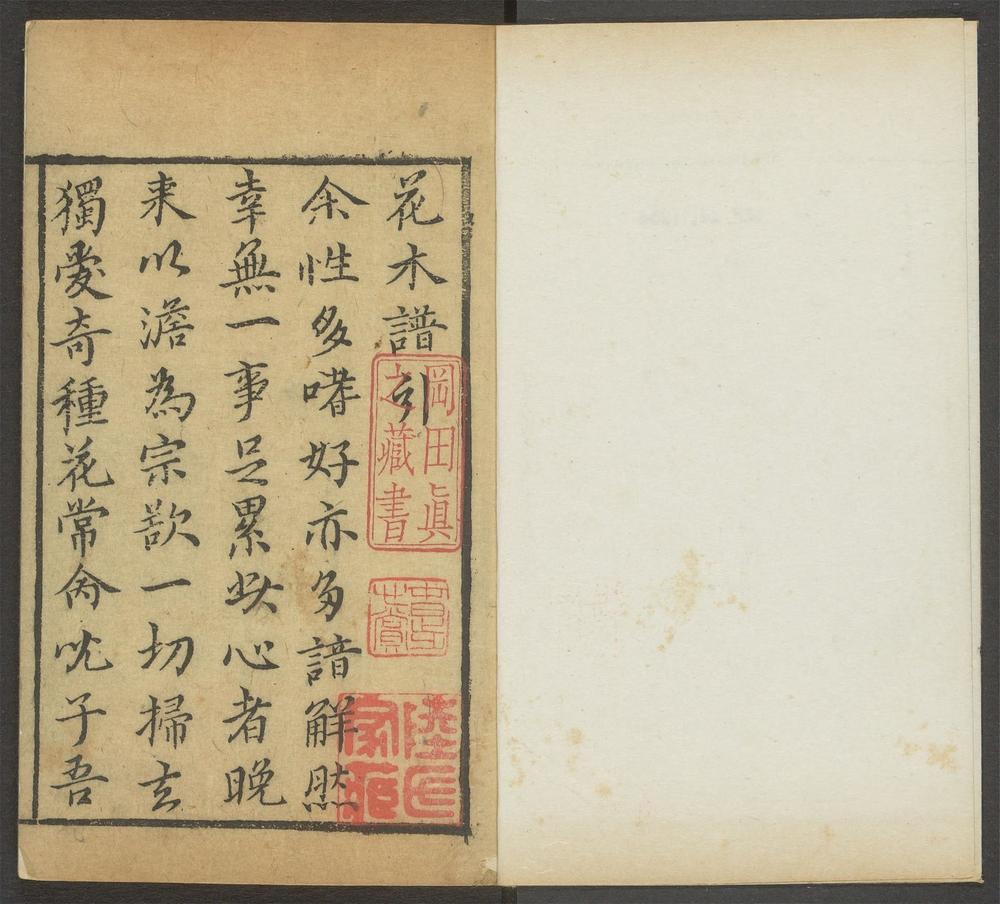 花木譜引
余性多嗜好亦多諳解然
幸無一事足累此心者晚
来以澹為宗欲一切掃去
獨愛奇種花常禽吪子吾
岡田眞
之藏書